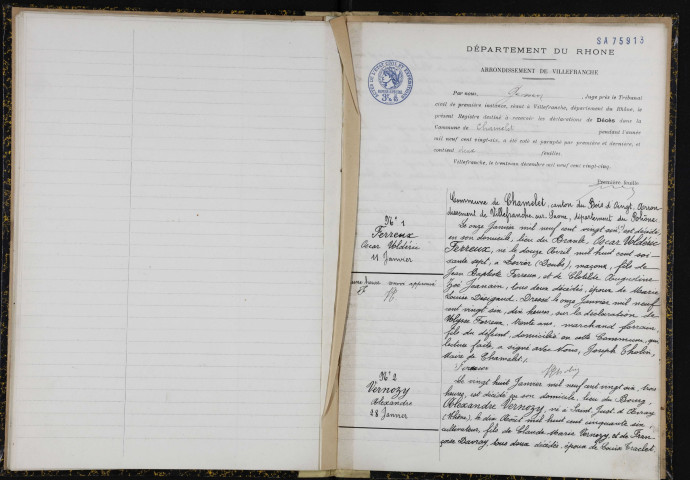 SA 75913
DÉPARTEMENT DU RHONE
ARRONDISSEMENT DE VILLEFRANCHE
Par nous, Juge près le Tribunal
civil de première instance, séant à Villefranche, département du Rhône, le
présent Registre destiné à recevoir les déclarations de Décès dans la
Commune de Chamelet pendant l'année
mil neuf cent vingt-six, a été coté et paraphé par première et dernière, et
contient feuilles
Villefranche, le trentième décembre mil neuf cent vingt-cinq.
Première feuille
Commune de Chamelet, canton du Bois d'Oingt, Arron
dissement de Villefranche sur Saone, département du Rhône
N° 1
Ferreux
Oscar Voldérie
11 Janvier
Le onze Janvier mil neuf cent vingt six, est décédé
en son domicile, lieu du Oscar Voldérie
Ferreux, né le douze Avril mil huit cent soi
xante sept, à (Doubs), maçon, fils de
Jean Baptiste Ferreux, et de Clotilde
Zoé Jeanain, tous deux décédés, époux de Marie
Louise Dressé le onze Janvier mil neuf
cent vingt six, dix heures, sur la déclaration de
Ferreux, trente ans, marchand forain,
fils du défunt, domicilié en cette Commune, qui
lecture faite, a signé avec Nous, Joseph Tholin,
Maire de Chamelet.
N° 2
Vernozy
Alexandre
28 Janvier
Le vingt huit Janvier mil neuf cent vingt six, trois
heures, est décédé en son domicile, lieu du Bourg,
Alexandre Vernozy, né à Saint Just d'Avray
(Rhône), le dix Août mil huit cent cinquante six
cultivateur, fils de Claude Marie Vernozy, et de Fran
çoise Davray tous deux décédés, époux de Louise Trachet